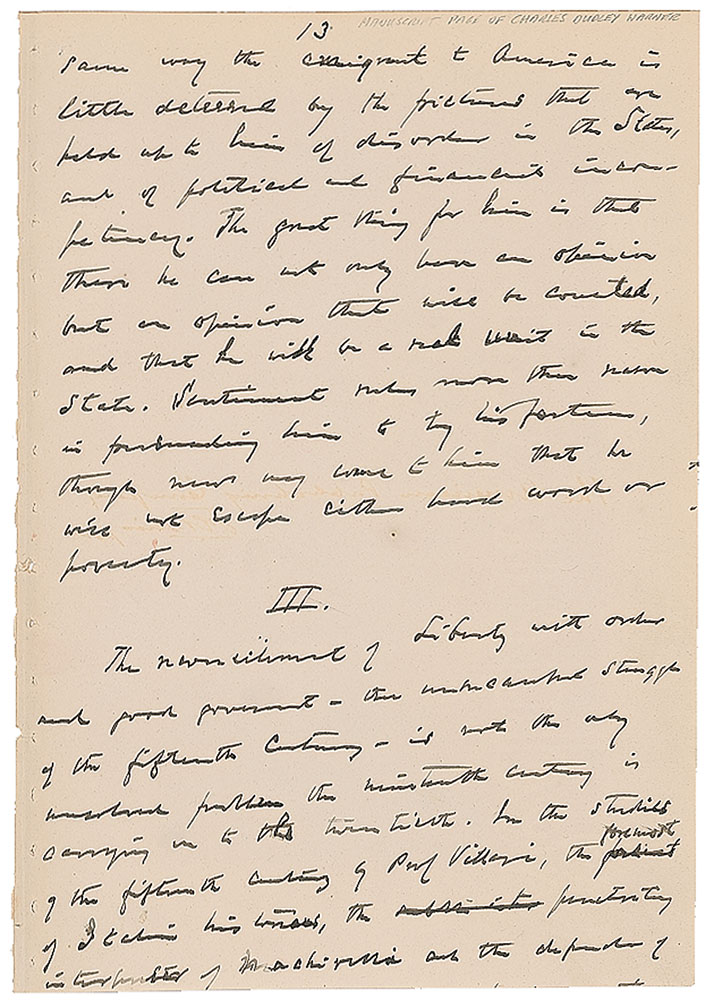 13
MANUSCRIPT PAGE OF CHARLES DUDLEY WARNER
same way the emigrant to America is
little deterred by the pictures that are
held up to him of disorder in the States,
and of political and financial incom-
petency. The great thing for him is that
there he can not only have an opinion
but an opinion that will be counted,
and that he will be a real unit in the
State. Sentiment rules more than reason
in persuading him to try his fortune,
though news may come to him that he
will not escape either hard work or
poverty.
III.
The reconcilement of Liberty with order
and good government – the unsuccessful struggle
of the fifteenth Century – is not the only
unsolved problem the nineteenth century is
carrying on to the twentieth. In the studies
of the fifteenth century of Prof Villari, the foremost
of Italian historians, the penetrating
interpreter of Machiavelli and the defender of